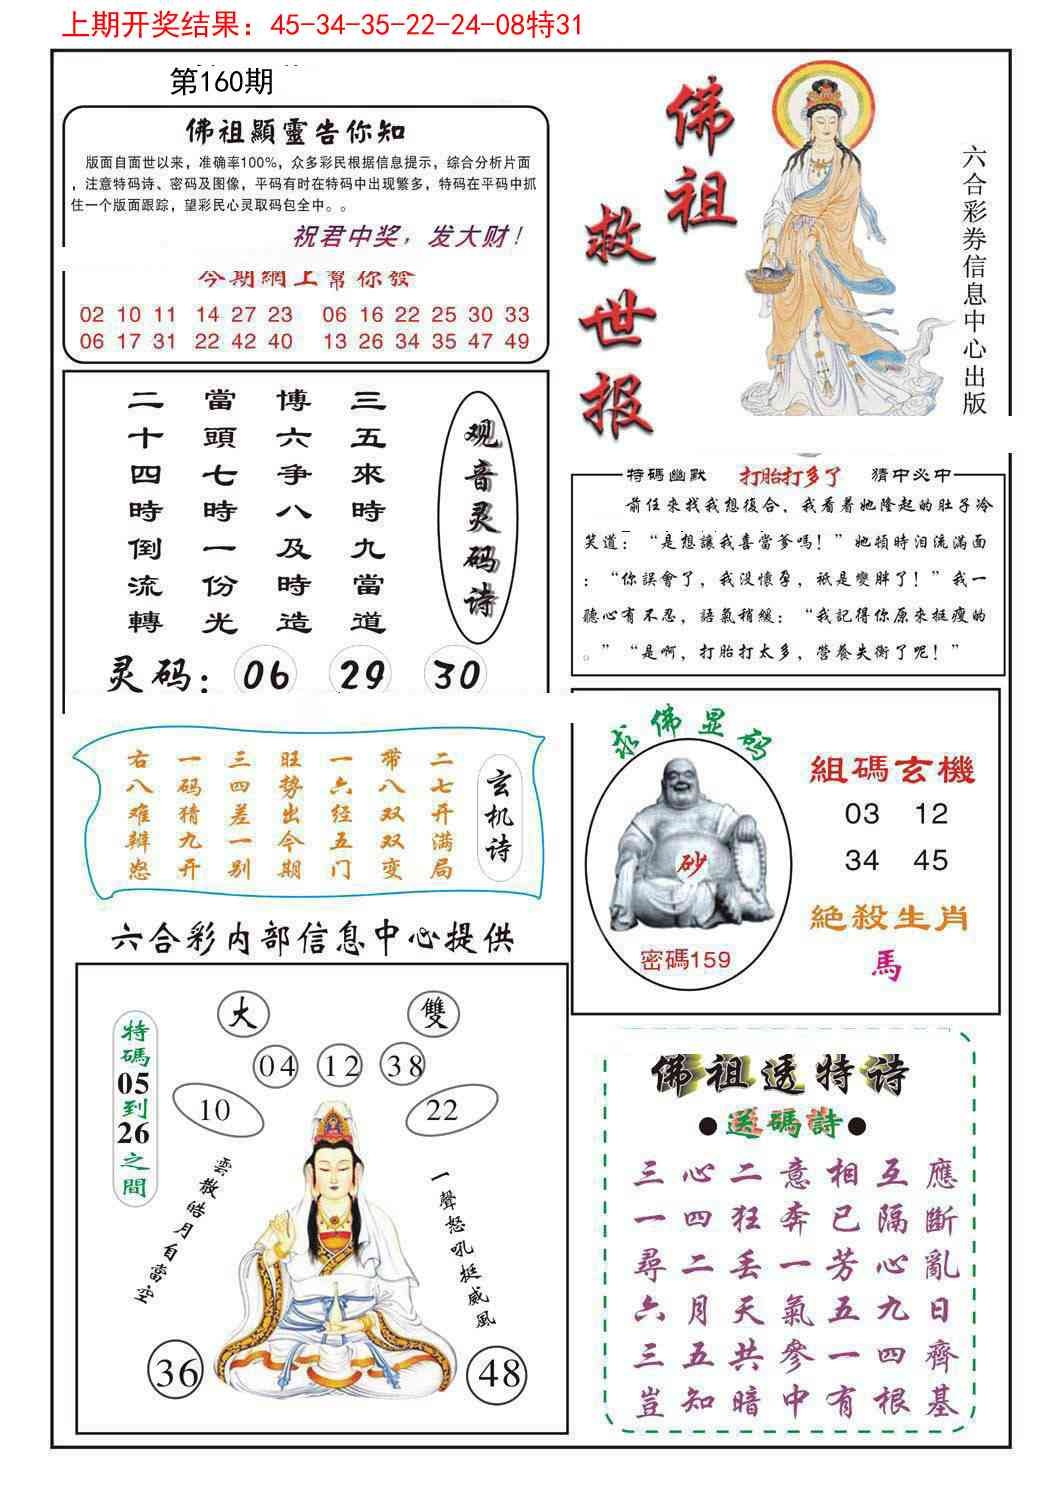 上期开奖结果：45-34-35-22-24-08特31
第160期
佛祖顯靈告你知
版面自面世以来，准确率100%，众多彩民根据信息提示，综合分析片面
，注意特码诗、密码及图像，平码有时在特码中出现繁多，特码在平码中抓
住一个版面跟踪，望彩民心灵取码包全中。。
祝君中奖，发大财！
今期網上幫你發
02 10 11 14 27 23 06 16 22 25 30 33
06 17 31 22 42 40 13 26 34 35 47 49
佛祖
救世报
六合彩券信息中心出版
观音灵码诗
三五來時九當道
博六爭八及時造
當頭七時一份光
二十四時倒流轉
灵码：06 29 30
特碼幽默 打胎打多了 猜中必中
前任來找我想復合，我看着她隆起的肚子冷
笑道：“是想讓我喜當爹嗎！”她頓時泪流滿面
：“你誤會了，我沒懷孕，祇是變胖了！”我一
聽心有不忍，語氣稍緩：“我記得你原來挺瘦的
。”“是啊，打胎打太多，營養失衡了呢！”
玄机诗
二七开满局
带八双双变
一六经五门
旺势出今期
三四差一别
一码猜九开
右八难辩愁
求佛显码
砂
密碼159
組碼玄機
03 12
34 45
絕殺生肖
馬
六合彩内部信息中心提供
大 雙
04 12 38
10 22
特碼05到26之間
雲散皓月自當空
一聲怒吼挺威風
36 48
佛祖透特诗
●送碼詩●
三心二意相互應
一四狂奔已隔斷
尋二丢一芳心亂
六月天氣五九日
三五共參一四齊
豈知暗中有根基